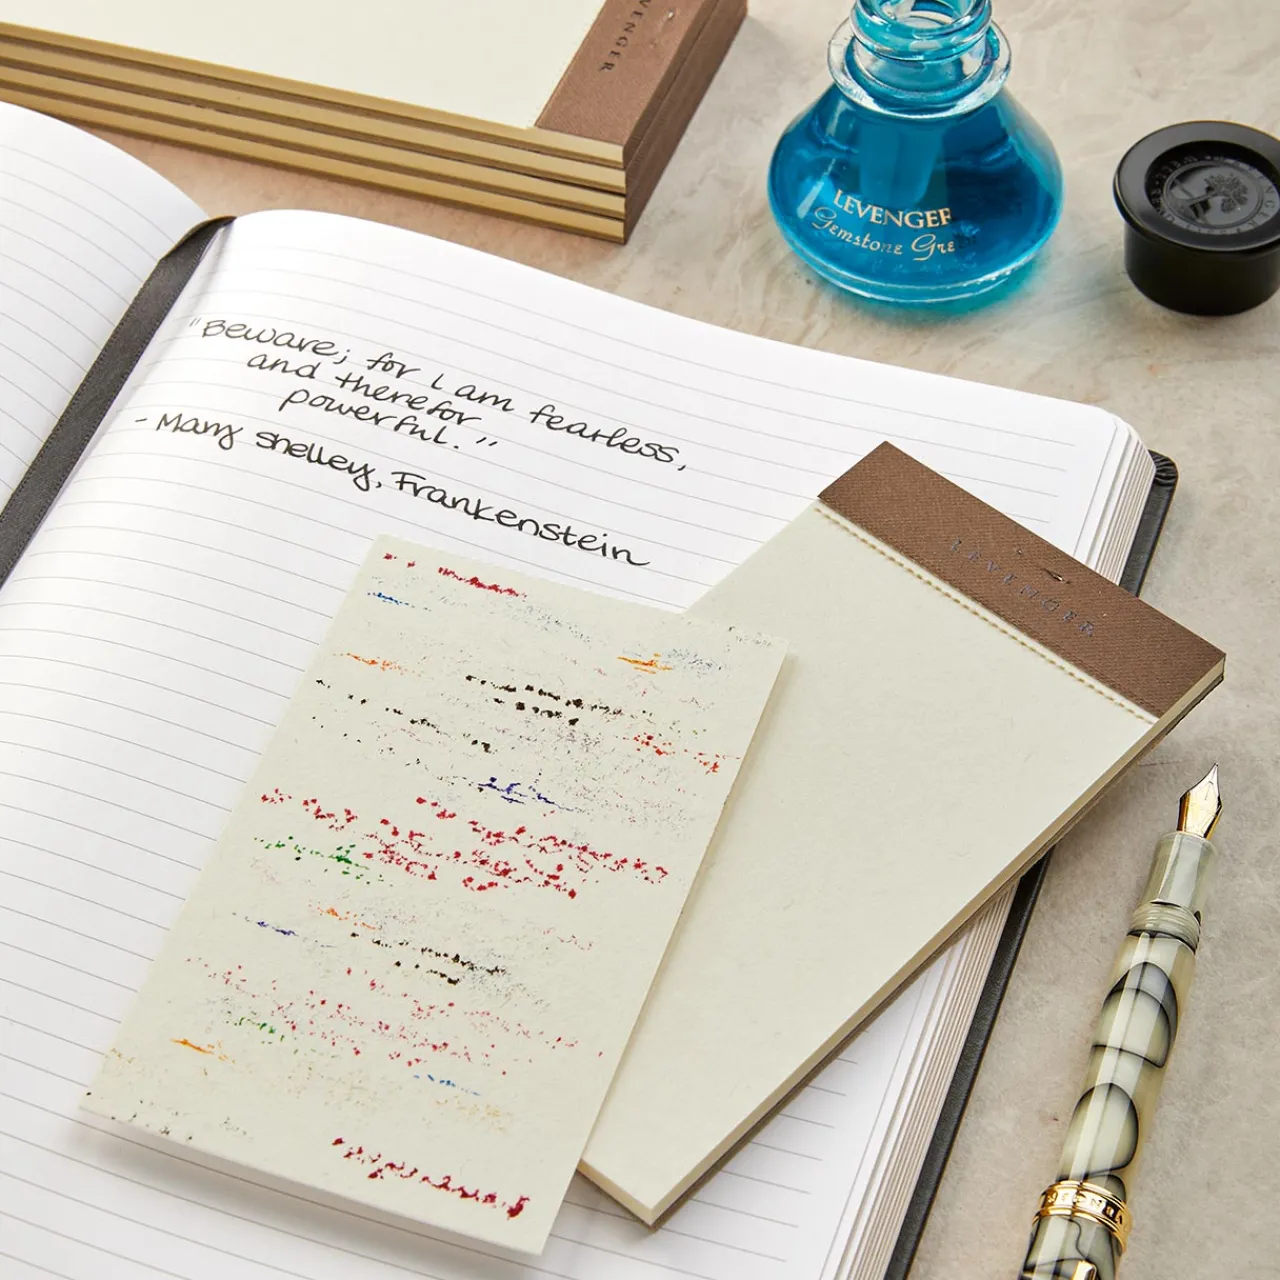 LEVENGER
LEVENGER
Gemstone Gre
"Beware; for I am fearless,
and therefor
powerful."
- Mary Shelley, Frankenstein
LEVENGER